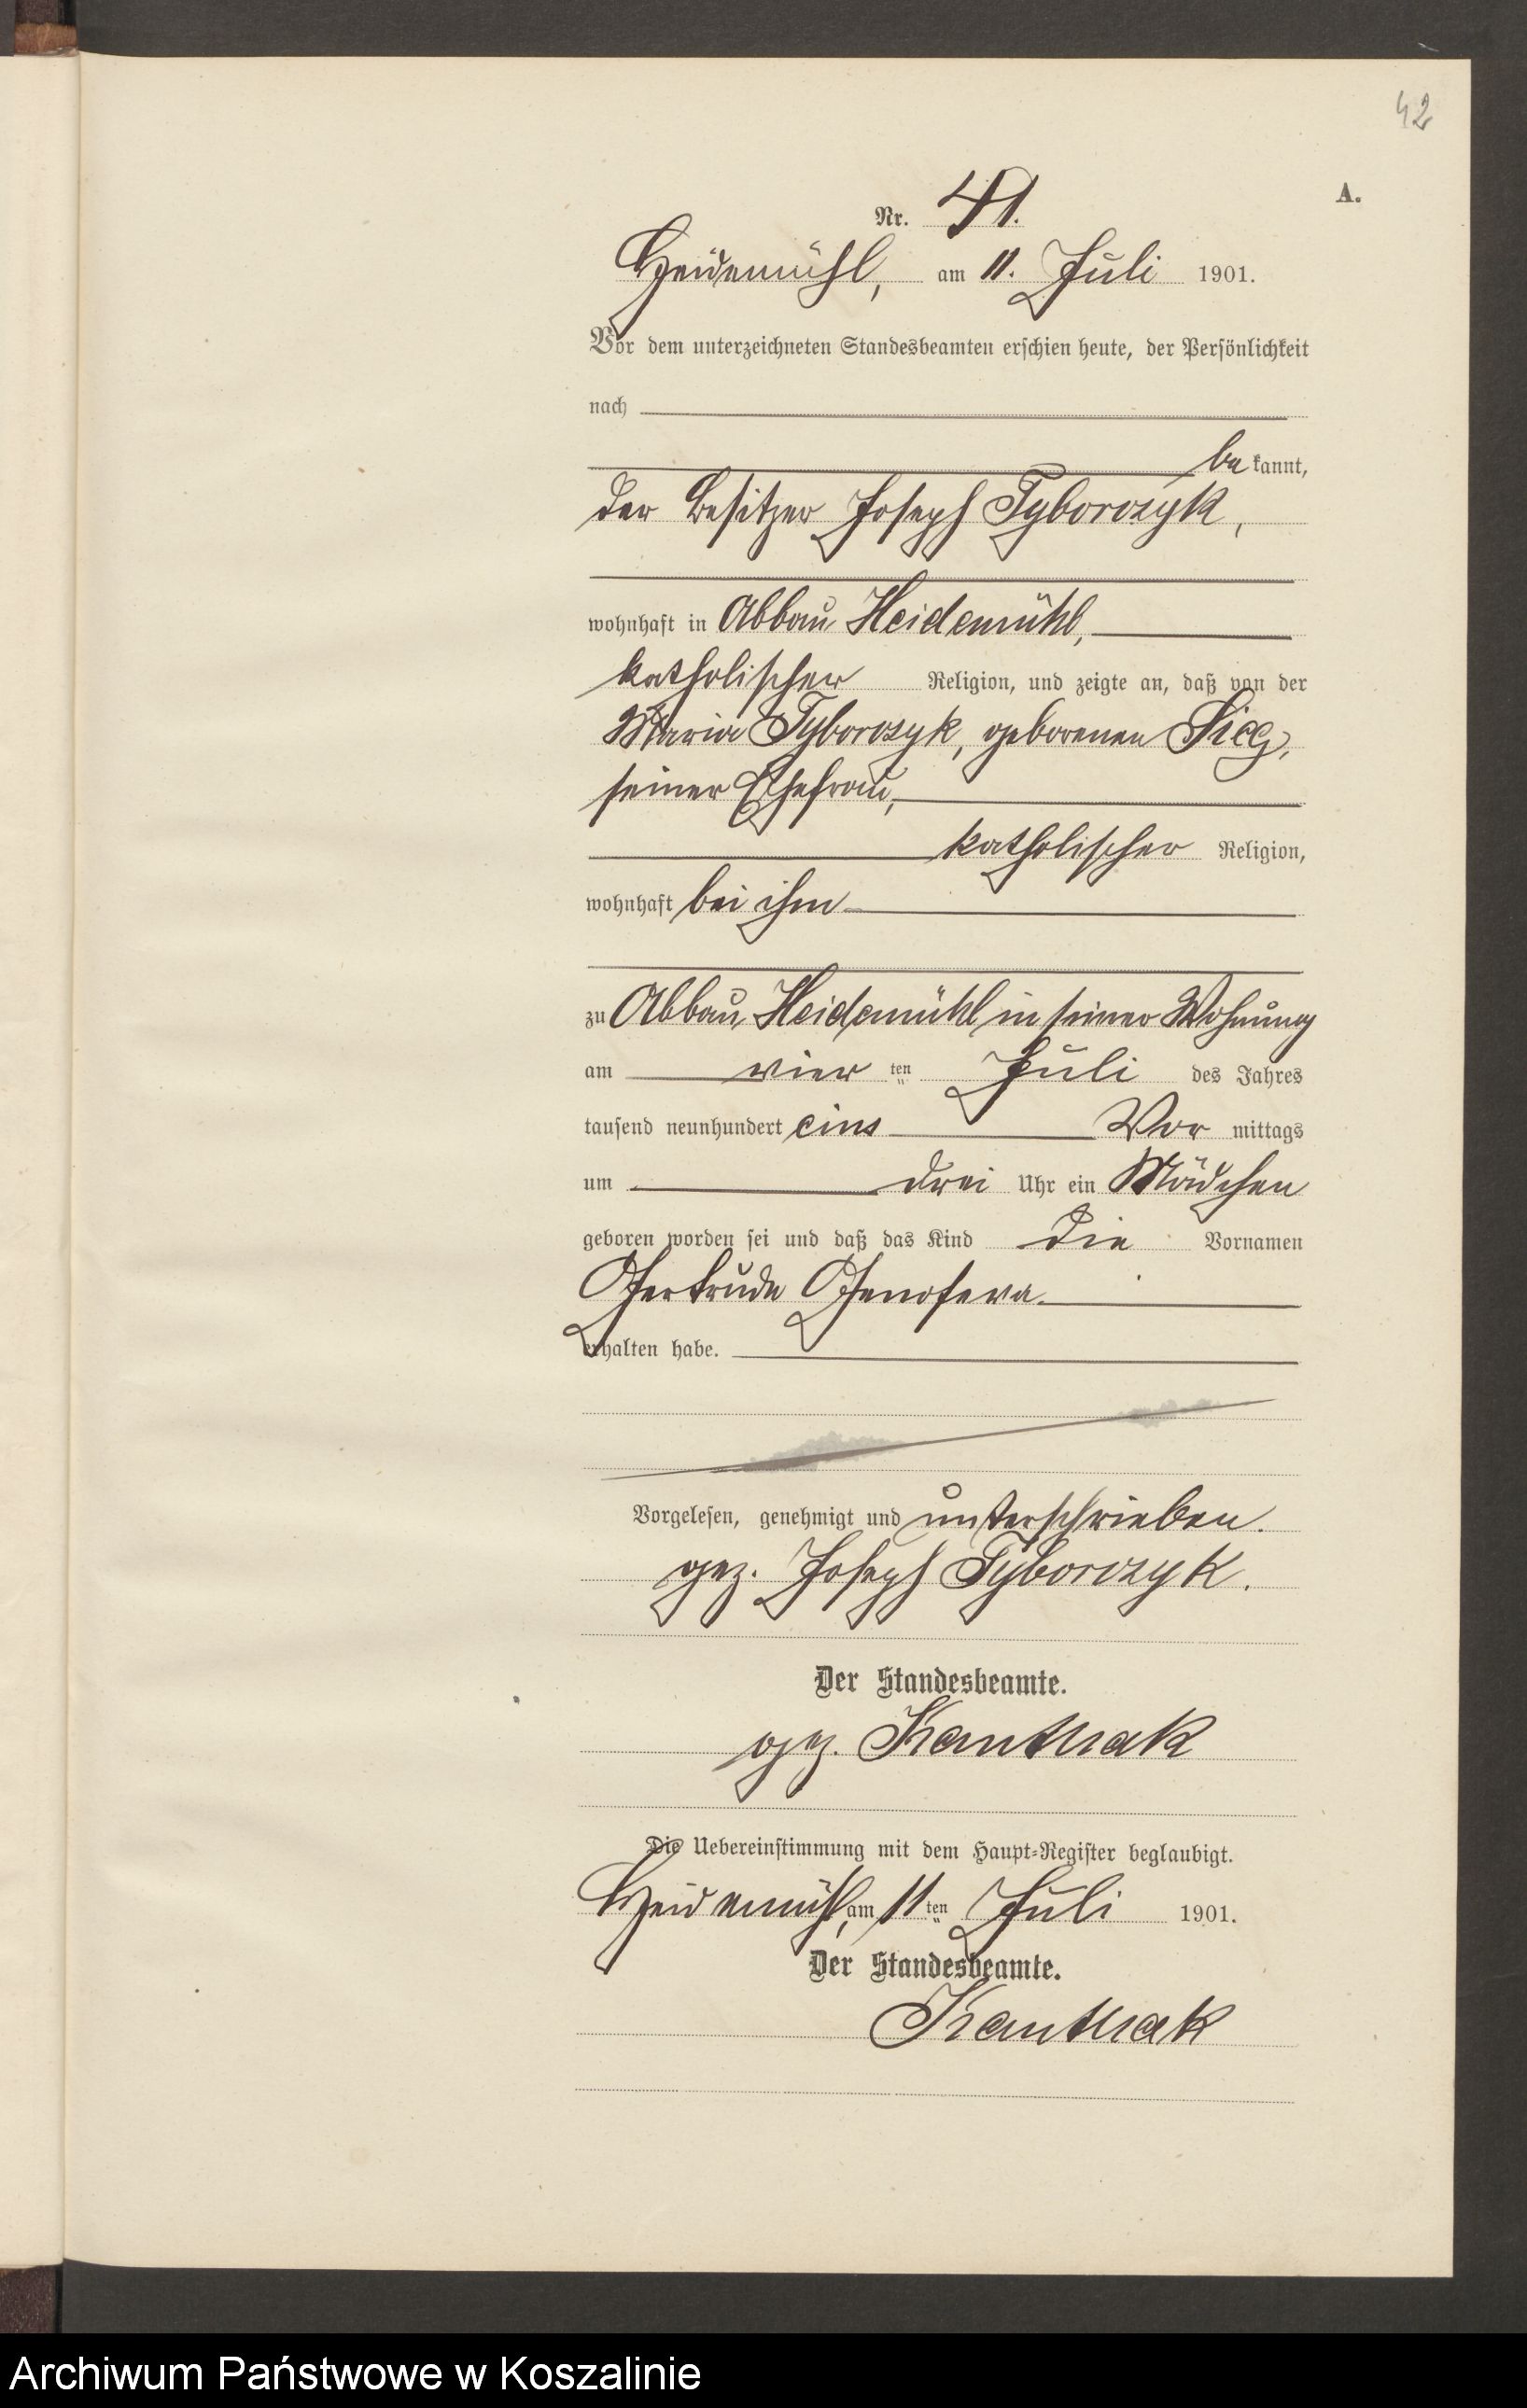 42
A.
Nr. 41.
Heidemühl, am 11. Juli 1901.
Vor dem unterzeichneten Standesbeamten erschien heute, der Persönlichkeit
nach
be kannt,
der Besitzer Joseph Tyborczyk,
wohnhaft in Abbau Heidemühl,
katholischer Religion, und zeigte an, daß von der
Maria Tyborczyk, geborenen Sieg,
seiner Ehefrau,
katholischer Religion,
wohnhaft bei ihm
zu Abbau Heidemühl in seiner Wohnung
am vier ten Juli des Jahres
tausend neunhundert eins Vor mittags
um drei Uhr ein Mädchen
geboren worden sei und daß das Kind die Vornamen
Gertrude Genofeva
erhalten habe.
Vorgelesen, genehmigt und unterschrieben.
gez. Joseph Tyborczyk.
Der Standesbeamte.
gez. Kanthak
Die Uebereinstimmung mit dem Haupt-Register beglaubigt.
Heidemühl, am 11ten Juli 1901.
Der Standesbeamte.
Kanthak
Archiwum Państwowe w Koszalinie